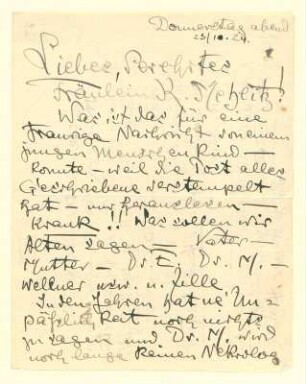 Donnerstag abend
23/10.24.
Liebes, verehrtes
Fräulein K. !
Was ist das für eine
traurige Nachricht von einem
jungen Menschenkind —
konnte — weil die Post alles
Geschriebene verstempelt
hat — nur herauslesen —
Krank!!! Was sollen wir
Alten sagen — Vater —
Mutter — Dr. M. —
usw. u. Zille,
In den Jahren hat ne Un-
päßlichkeit noch nichts
zu sagen und Dr. M. wird
noch lange keinen Nekrolog